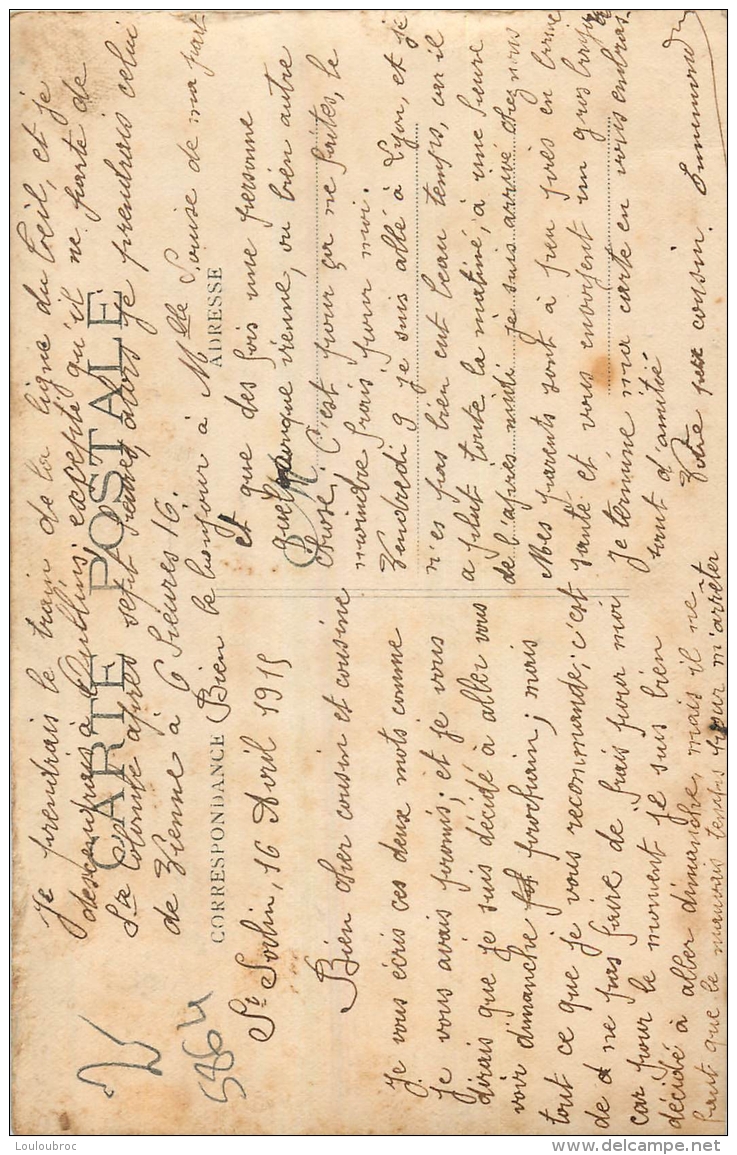 CARTE POSTALE
CORRESPONDANCE
ADRESSE
St Sorlin, 16 Avril 1915
Bien cher cousin et cousine
Je vous écris ces deux mots comme
je vous avais promis; et je vous
dirais que je suis décidé à aller vous
voir dimanche prochain; mais
tout ce que je vous recommande; c'est
de ne pas faire de frais pour moi
car pour le moment je suis bien
décidé à aller dimanche, mais il ne
faut que le mauvais temps pour m'arrêter
et que des fois une personne
quelquonque vienne, ou bien autre
chose; C'est pour ça ne faites, le
moindre frais pour moi.
Vendredi 9 je suis allé à Lyon, et je
n'es pas bien eut beau temps, car il
a plut toute la matiné, à une heure
de l'après midi je suis arrivé chez nous
Mes parents sont à peu près en bonne
santé et vous envoisent un gros bonjour
Je termine ma carte en vous embras
tout d'amitié
Votre cousin.
Je prendrais le train de la ligne du Teil, et je
descendrais à Oullins; excepté qu'il ne parte de
Ste Colombe après sept heures, alors je prendrais celui
de Vienne à 6 heures 16.
Bien le bonjour à Mlle Louise de ma part
5864
Louloubroc
DELCAMPE.NET